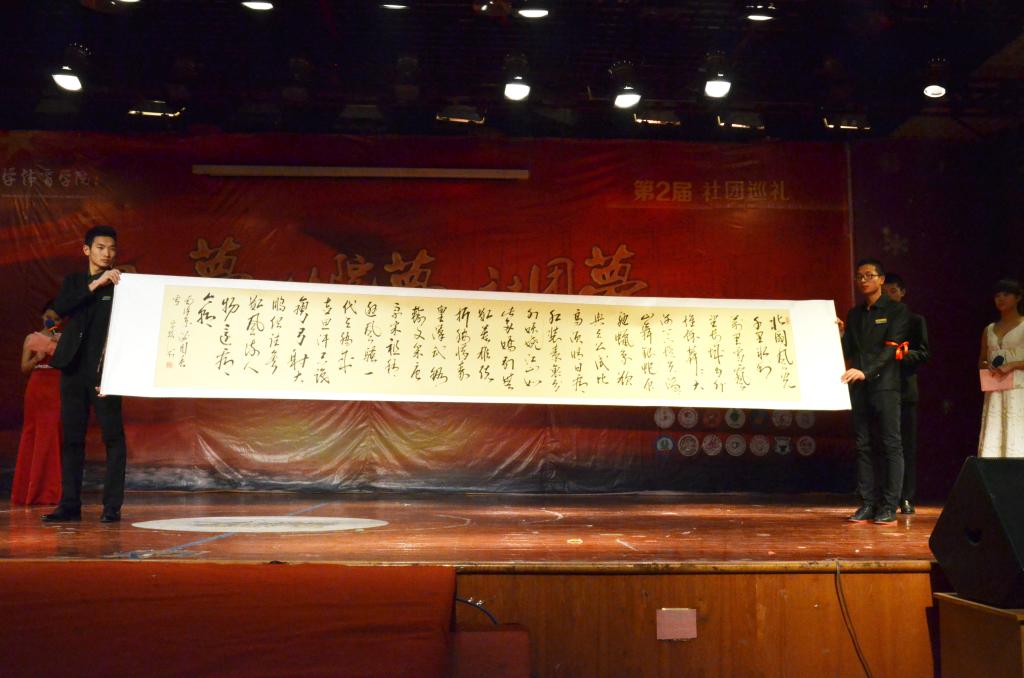 学体育学院
第2届 社团巡礼
夢 院夢 社团夢
北國风光
千里冰封
萬里雪飘
望长城内外
惟余莽々大
河上下顿失滔
山舞银蛇原
驰蜡象欲
与天公试比
高须晴日看
红装素裹分
外妖娆江山如
此多娇引無
数英雄竞
折腰惜秦
皇漢武略
输文采唐
宗宋祖稍
逊风骚一
代天骄成
吉思汗只识
弯弓射大
雕俱往矣
数风流人
物還看
今朝